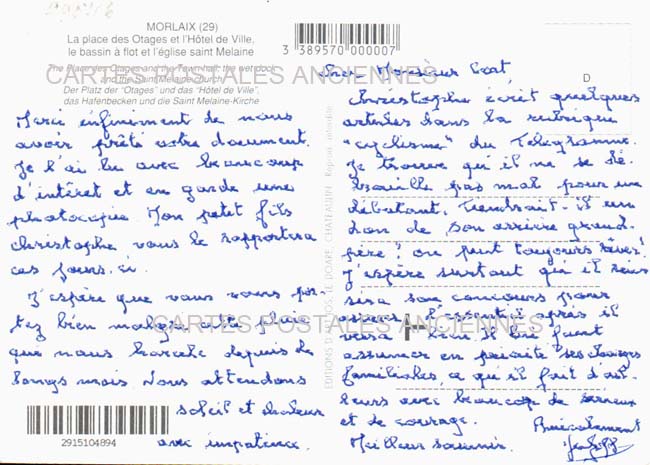 MORLAIX (29)
La place des Otages et l'Hôtel de Ville,
le bassin à flot et l'église saint Melaine
The Place des Otages and the Town-hall, the wet dock
and the Saint Melaine church
Der Platz der "Otages" und das "Hôtel de Ville",
das Hafenbecken und die Saint Melaine-Kirche
3 389570 000007
CARTES POSTALES ANCIENNES
D
Merci infiniment de nous
avoir prêté votre document.
Je l'ai lu avec beaucoup
d'intérêt et en garde une
photocopie Mon petit fils
Christophe vous le rapportera
ces jours ci.
J'espère que vous vous por-
tez bien malgré cette pluie
que nous harcèle depuis de
longs mois. Nous attendons
soleil et chaleur
avec impatience.
2915104894
EDITIONS D'ART JOS LE DOARE, CHATEAULIN
Cher Monsieur
Christophe écrit quelques
articles dans la rubrique
"cyclisme" du Télégramme.
Je trouve qu'il ne se dé-
brouille pas mal pour un
débutant. Tiendrait-il un
don de son arrière grand-
père? on peut toujours rêver!
J'espère surtout qu'il réus
sira son concours pour
après il
verra bien. Il lui faut
assumer en priorité ses charges
familiales, ce qu'il fait d'ail-
leurs avec beaucoup de sérieux
et de courage. Amicalement
Meilleur souvenir.
CARTES POSTALES ANCIENNES